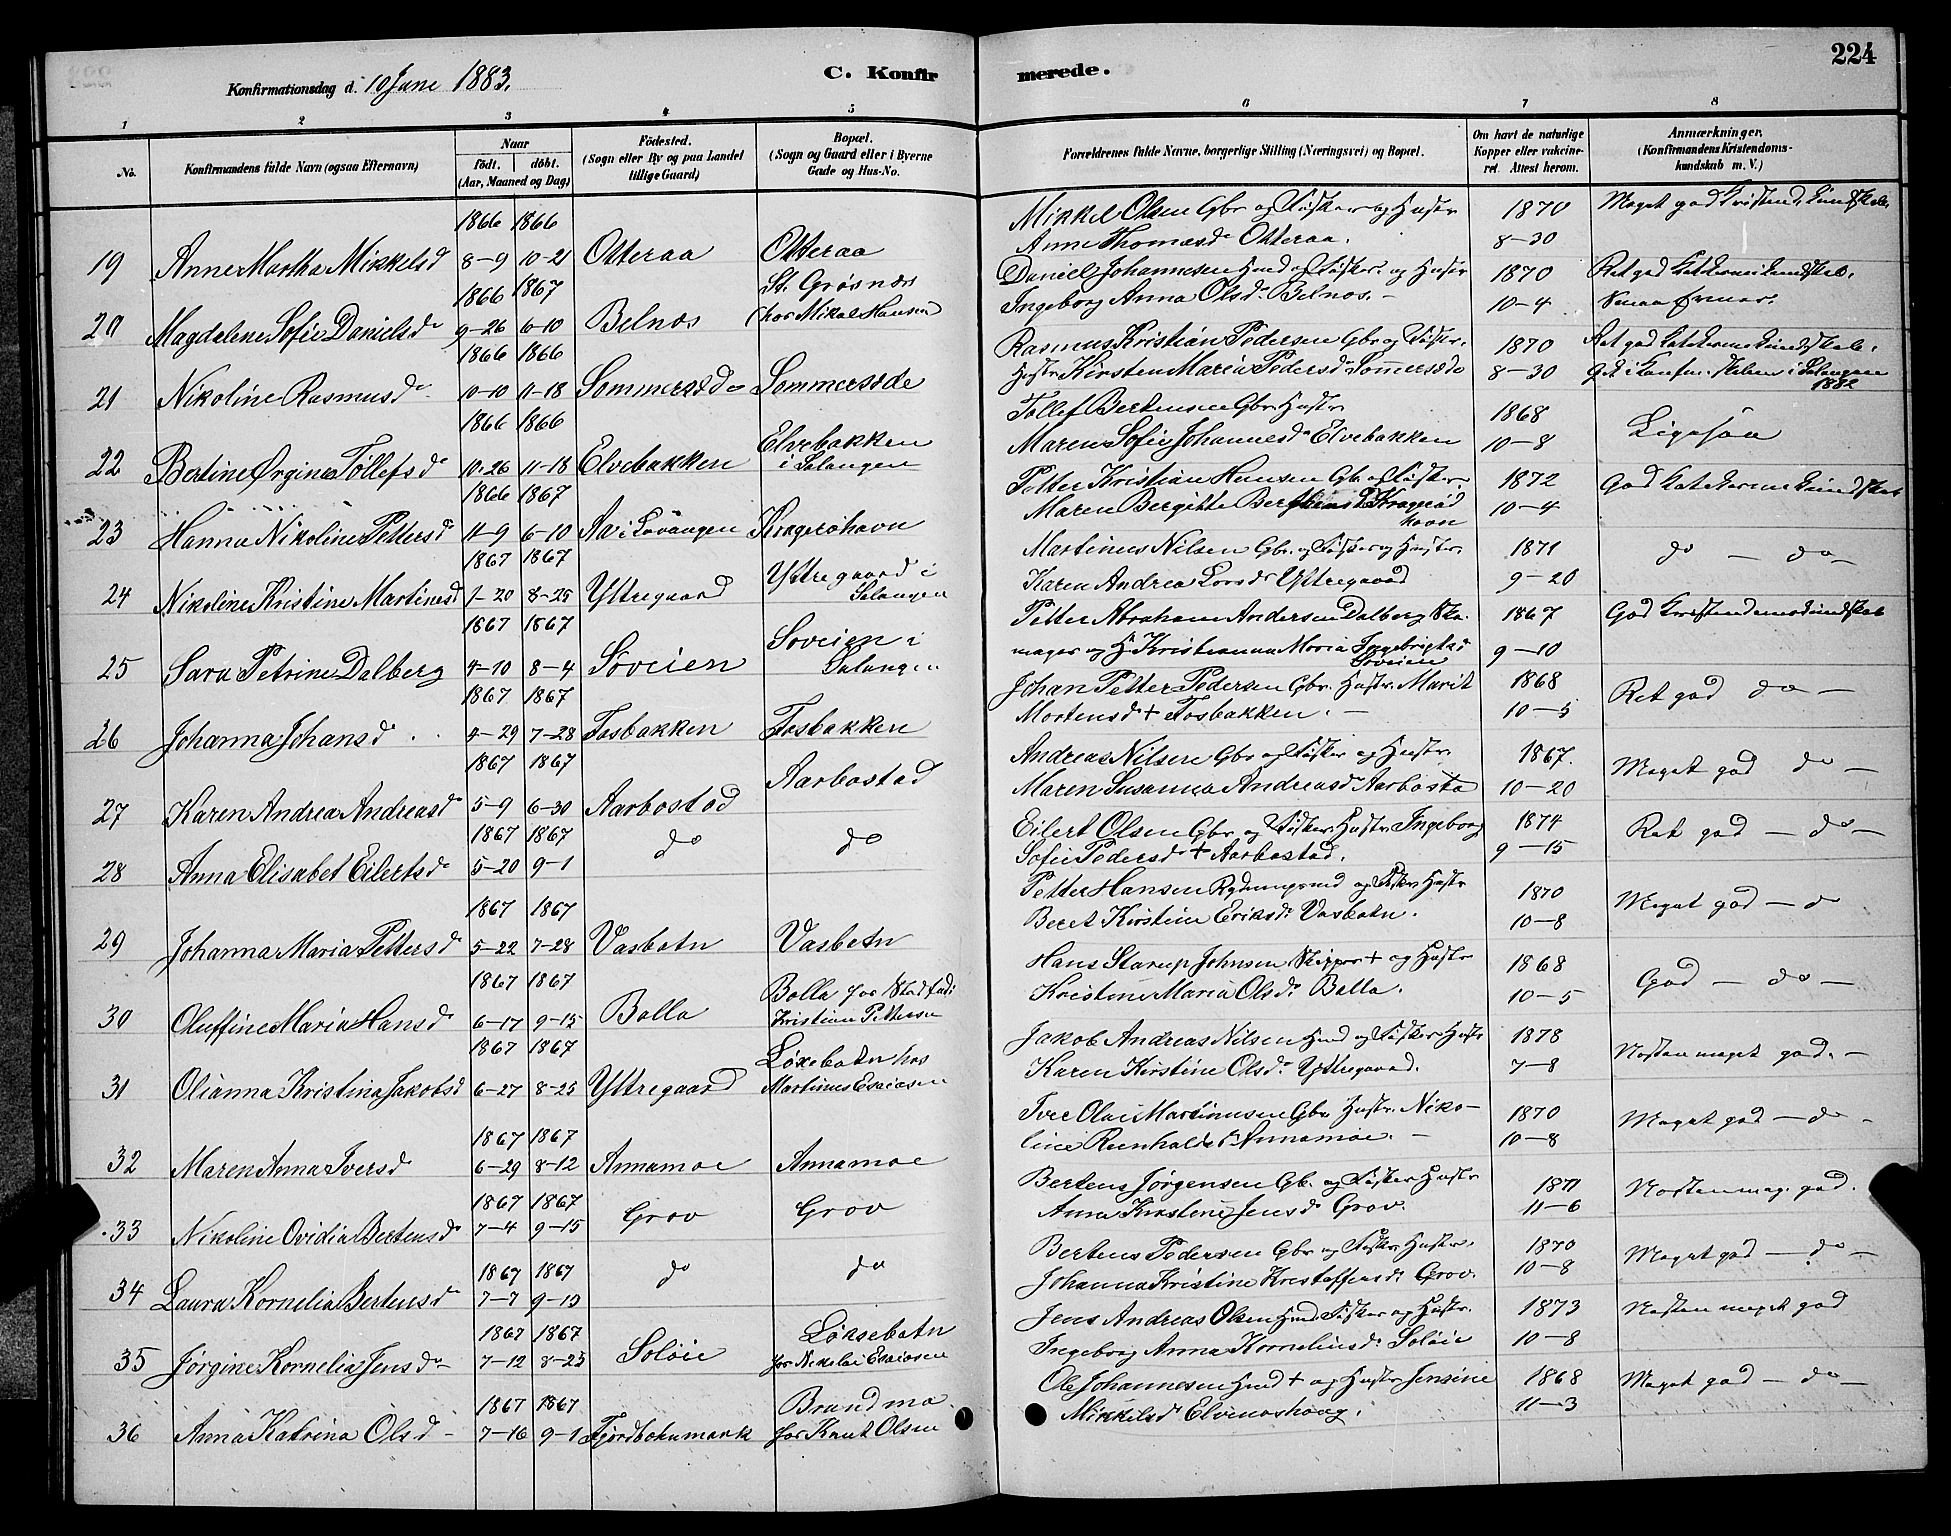 224
Konfirmationsdag d. 10 June 1883.
C. Konfirmerede.
1 2 3 4 5 6 7 8
No. Konfirmandens fulde Navn (ogsaa Efternavn) Naar født. døbt. (Aar, Maaned og Dag) Fødested. (Sogn eller By og paa Landet tillige Gaard) Bopæl. (Sogn og Gaard eller i Byerne Gade og Hus-No. Forældrenes fulde Navne, borgerlige Stilling (Næringsvei) og Bopæl. Om havt de naturlige Kopper eller vakcineret. Attest herom. Anmærkninger. (Konfirmandens Kristendomskundskab m. V.)
1866 1866 Mikkel Olsen Gbr og Fisker og Hustr 1870 Meget god Kristend. kundskab.
19 Anne Martha Mikkelsd 8-9 10-21 Otteraa Otteraa Anne Thomasd Otteraa. 8-30
1866 1867 St. Grøsnæs Daniel Johannesen Hmd og Fisker og Hustr 1870 Ret god
20 Magdalene Sofie Danielsd 9-26 6-10 Belnæs hos Mikal Hansen Ingeborg Anna Olsd. Belnæs. - 10-4 Smaa Evner.
1866 1866 Rasmus Kristian Pedersen Gbr og Fisker. 1870 Ret god
21 Nikoline Rasmusd 10-10 11-18 Sommersæde Sommersæde Hustr Kirsten Maria Pedersd Sommersæde 8-30 i Salangen 1882
1866 1866 Tollef Bertensen Gbr. Hustr 1868 Ligesaa
22 Bertine Ørgine Tollefsd 10-26 11-18 Elvebakken Elvebakken i Salangen Maren Sofie Johannesd Elvebakken 10-8
1866 1867 Petter Kristian Hansen Gbr og Fisker 1872 God
23 Hanna Nikoline Pettersd 11-9 6-10 Aa i Lavangen Kragerøhavn Maren Bergitte 10-4
1867 1867 Martinus Nilsen Gbr. og Fisker og Hustr. 1871 do - do -
24 Nikoline Kristine Martinsd 1-20 8-25 Yttregaard Yttregaard i Salangen Karen Andrea Larsd. Yttregaard 9-20
1867 1867 Petter Abraham Andersen Dalberg Sko- 1867 God Kristendomskundskab
25 Sara Petrine Dalberg 4-10 8-4 Søveien Søveien i Salangen mager og H. Kristianna Maria Ingebrigtsd Søveien 9-10
1867 1867 Johan Petter Pedersen Gbr. Hustr. Marit 1868 Ret god do -
26 Johanna Johansd 4-29 7-28 Fosbakken Fosbakken Mortensd + Fosbakken. - 10-5
1867 1867 Andreas Nilsen Gbr og Fisker og Hustr. 1867. Meget god do -
27 Karen Andrea Andreasd 5-9 6-30 Aarbostad Aarbostad Maren Susanna Andreasd. Aarbosta 10-20
1867 1867 Eilert Olsen Gbr og Fisker Hustr. Ingeborg 1874 Ret god - do -
28 Anna Elisabet Eilertsd 5-20 9-1 do do Sofie Pedersd + Aarbostad. 9-15
1867 1867 Petter Hansen og Fisker Hustr 1870 Meget god - do
29 Johanna Maria Pettersd 5-22 7-28 Vasbotn Vasbotn Beret Kirstine Eriksd. Vasbotn. 10-8
1867 1867 Hans Starup Johnsen Skipper + og Hustr 1868 God - do -
30 Oluffine Maria Hansd 6-17 9-15 Bolla Bolla Kristian Pettersen Kristine Maria Olsd. Bolla. 10-5
1867 1867 Jakob Andreas Nilsen Hmd og Fisker Hustr 1878 Næsten meget god. -
31 Olianna Kristina Jakobsd 6-27 8-25 Yttregaard Løksebotn hos Martinus Esaiasen Karen Kirstine Olsd. Yttregaard. 7-8
1867 1867 Iver Olai Martinusen Gbr Hustr. Niko- 1870 Meget god - do -
32 Maren Anna Iversd 6-29 8-12 Annamoe Annamoe line Reinholdsd. Annamoe. - 10-8
1867 1867 Bertens Jørgensen Gb. og Fisker Hustr 1871 Næsten meg. god.
33 Nikoline Ovidia Bertensd 7-4 9-15 Grov Grov Anna Kirstine Jensd Grov. 11-6
1867 1867 Bertens Pedersen Gbr og Fisker Hustr. 1870 Meget god - do -
34 Laura Kornelia Bertensd 7-7 9-15 do do Johanna Kristine Kristoffersd. Grov. 10-8
1867 1867 Jens Andreas Olsen Hmd Fisker og Hustr. 1873 Næsten meget god
35 Jørgine Kornelia Jensd 7-12 8-25 Soløie Løksebotn for Nikolai Esaiasen Ingeborg Anna Korneliusd. Soløie 10-8
1867 1867 Ole Johannesen Hmd + og Hustr Jensine 1868 Meget god - do -
36 Anna Katrina Olsd - 7-16 9-1 Fjordbotnmark Brandmo for Knut Olsen Mikkelsd Elvenæshaug. 11-3